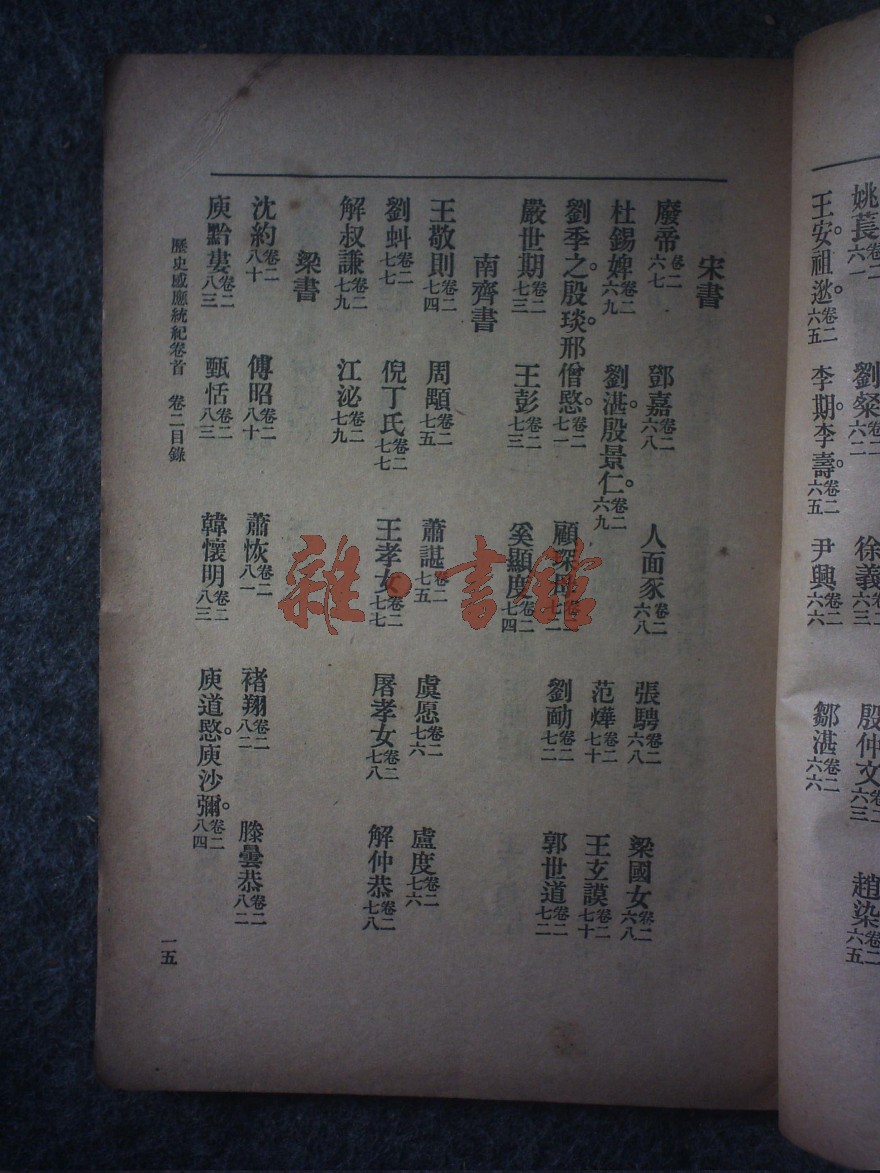 姚萇卷二六一 劉粲卷二六二 徐義卷二六三 殷仲文卷二六三 趙染卷二六五
王安祖逖。卷二六五 李期。李壽。卷二六五 尹興卷二六六 鄒湛卷二六六
宋書
廢帝卷二六七 鄧嘉卷二六八 人面豕卷二六八 張騁卷二六八 梁國女卷二六八
杜錫婢卷二六九 劉湛。殷景仁。卷二六九 范燁卷二七十 王玄謨卷二七十
劉季之。殷琰。邢僧愍。卷二七一 顧琛母卷二七二 劉勔卷二七二 郭世道卷二七二
嚴世期卷二七三 王彭卷二七三 奚顯度卷二七四
南齊書
王敬則卷二七四 周顒卷二七五 蕭諶卷二七五 虞愿卷二七六 盧度卷二七六
劉蚪卷二七七 倪丁氏卷二七七 王孝女卷二七七 屠孝女卷二七八 解仲恭卷二七八
解叔謙卷二七九 江泌卷二七九
梁書
沈約卷二八十 傅昭卷二八十 蕭恢卷二八一 褚翔卷二八二 滕曇恭卷二八二
庾黔婁卷二八三 甄恬卷二八三 韓懷明卷二八三 庾道愍。庾沙彌。卷二八四
歷史感應統紀卷首 卷二目錄
一五
雜·書館